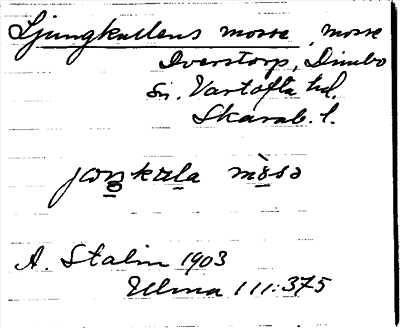 Ljungkullens mosse, mosse
Överstorp, Dimbo
Sn. Vartofta hd.
Skarab. l.
A. Stalin 1903
Ulma 111:375